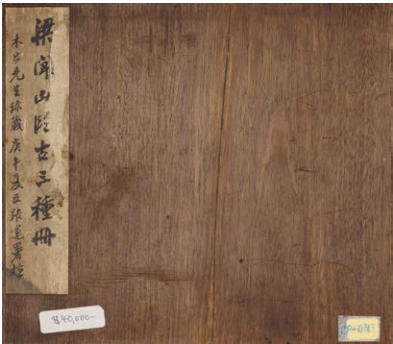 梁聞山臨古三種冊
先生珍藏庚午夏五張署
$40,000-